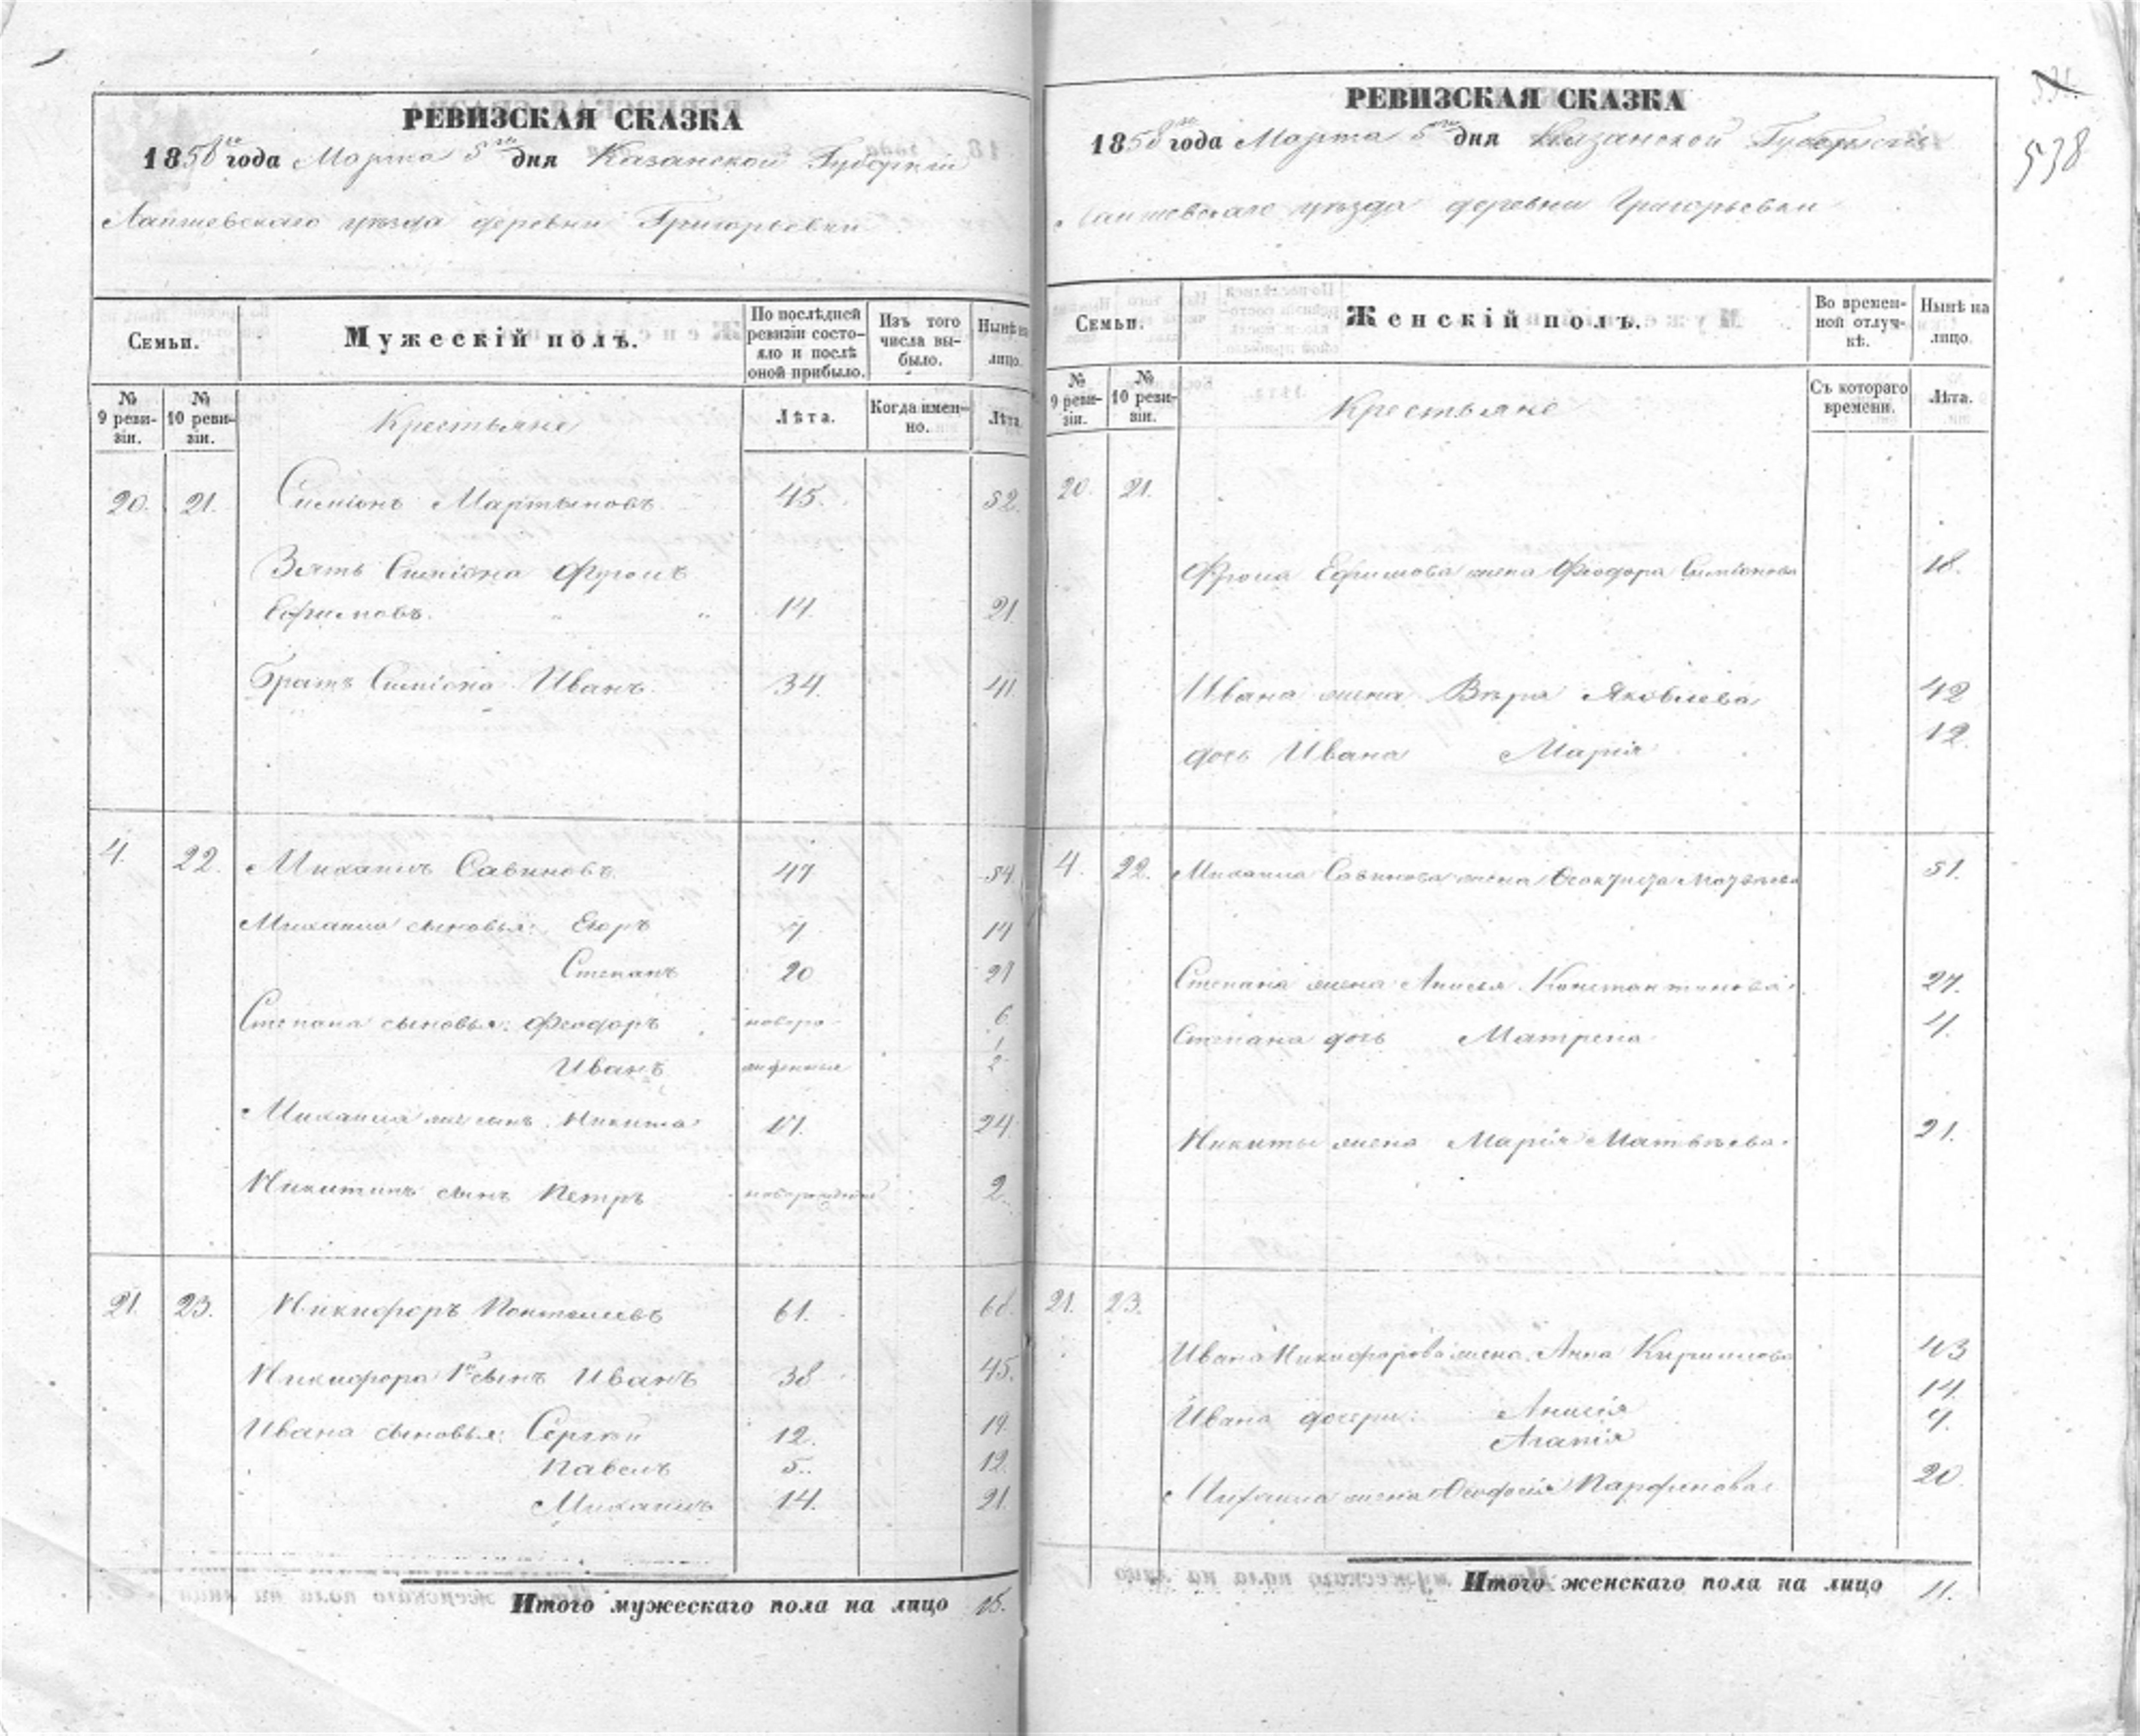 РЕВИЗСКАЯ СКАЗКА
1858го года Марта 5го дня Казанской Губерніи
Лаишевскаго уѣзда деревни Григорьевки
Семьи.
Мужескій полъ.
По послѣдней ревизіи состояло и послѣ оной прибыло.
Изъ того числа выбыло.
Нынѣ на лицо.
№ 9 ревизіи.
№ 10 ревизіи.
Крестьяне
Лѣта.
Когда именно.
Лѣта.
20. 21. Симіонъ Мартыновъ 45. 52.
Зять Симіона
Ефимовъ. 14. 21.
Братъ Симіона Иванъ 34. 41.
4. 22. Михаилъ Савиновъ 47 54.
Михаила сыновья: Егоръ 7 14
Степанъ 20 27
Степана сыновья: Феодоръ новоро 6
Иванъ жденныя 1/2
Михаила сынъ Никита 17. 24.
Никитинъ сынъ Петръ новорожденный 2.
21. 23. Никифоръ 61. 68.
Никифора 1й сынъ Иванъ 38 45.
Ивана сыновья: Сергѣй 12. 19.
Павелъ 5. 12.
Михаилъ 14. 21.
Итого мужескаго пола на лицо 15.
РЕВИЗСКАЯ СКАЗКА
1858го года Марта 5го дня Казанской Губерніи
Лаишевскаго уѣзда деревни Григорьевки
538
Семьи.
Женскій полъ.
Во временной отлучкѣ.
Нынѣ на лицо.
№ 9 ревизіи.
№ 10 ревизіи.
Крестьяне
Съ котораго времени.
Лѣта.
20. 21.
Фрола Ефимова жена Симіонова 18.
Ивана жена Вѣра Яковлева 42
дочь Ивана Марія 12.
4. 22. Михаила Савинова жена 51.
Степана жена Анисья Константинова 27.
Степана дочь Матрена 4.
Никиты жена Марія Матвѣева 21.
21. 23.
Ивана Никифорова жена Анна Кирилова 43
Ивана дочери: Анисія 14.
Агапія 7.
Михаила жена Парфенова 20.
Итого женскаго пола на лицо 11.